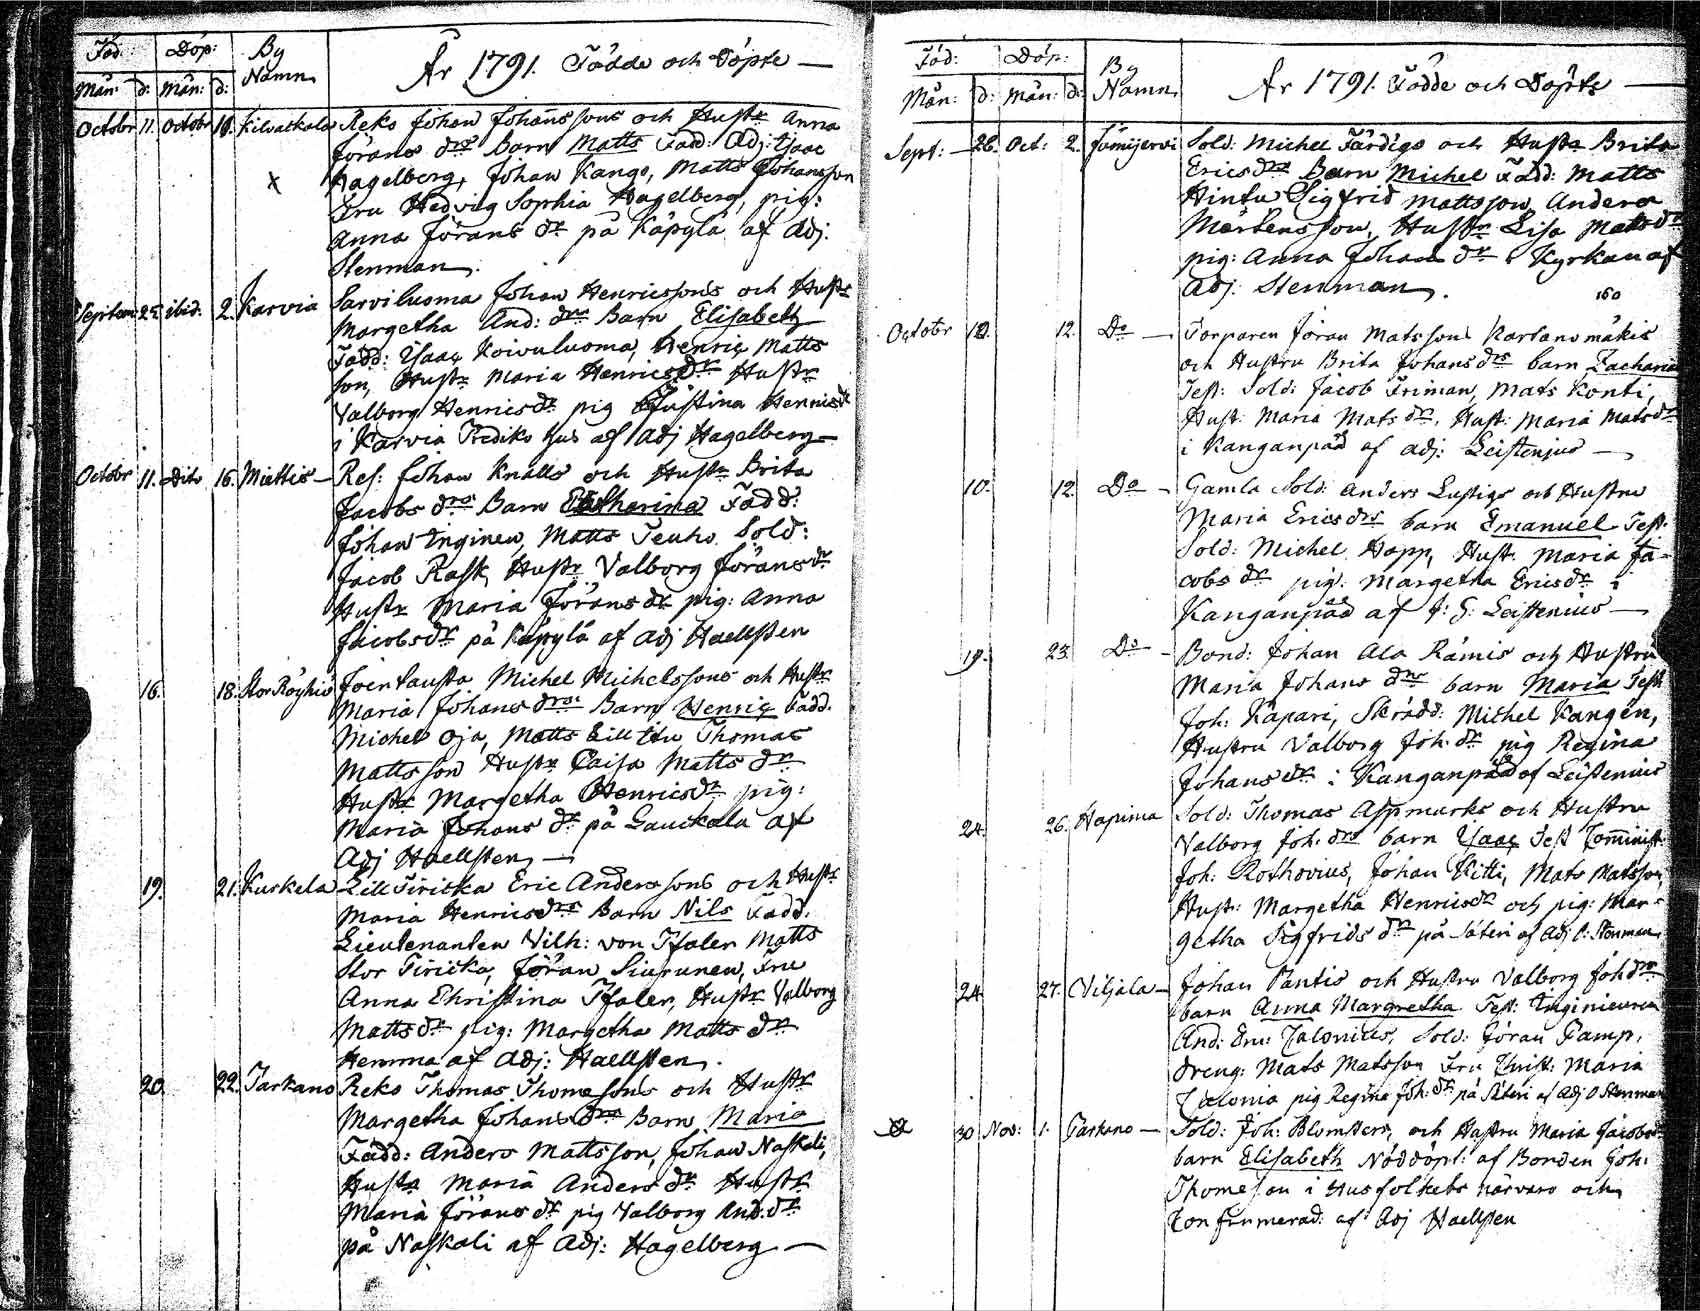 Föd: Döp: By
Mån: d: Mån: d: Namn
År 1791. Födde och Döpte —
Octobr 11. Octobr 18. Kilvakkala Reko Johan Johanssons och Hustr Anna
Jörans drs Barn Matts Fadd: Adj: Ysaac
Hagelberg, Johan Kango, Matts Johansson
Fru Hedvig Sophia Hagelberg, pig:
Anna Jörans dr på Käpylä af Adj:
Stenman.
Septem 25 ibid: 2. Karvia Sarviluoma Johan Henricssons och Hustr
Margetha And: drs Barn Elisabeth
Fadd: Ysaac Koivuluoma, Henric Matts
son, Hustr Maria Henricsdr Hustr
Valborg Henricsdr pig Justina Henricsdr
i Karvia Prediko hus af Adj Hagelberg —
Octobr 11. Dito 16. Miettis — Res: Johan Knalls och Hustr Brita
Jacobs drs Barn Catharina Fadd:
Johan Inginen, Matts Teuho Sold:
Jacob Rask, Hustr Valborg Jöransdr
Hustr Maria Jörans dr pig: Anna
Jacobsdr på Käpylä af Adj Haellsten
16. 18. Stor Röyhiö Joensausta Michel Michelssons och Hustr
Maria Johans drs Barn Henric Fadd:
Michel Oja, Matts Lill Thomas
Mattsson Hustr Caisa Matts dr
Hustr Margetha Henricsdr pig:
Maria Johans dr på Lauckala af
Adj Haellsten —
19. 21. Kuskela Lill Tiricka Eric Anderssons och Hustr
Maria Henricsdrs Barn Nils Fadd:
Lieutenanten Vilh: von Tfaler Matts
Stor Tiricka, Jöran Siurunen, Fru
Anna Christina Tfaler, Hustr Valborg
Mattsdr pig: Margetha Matts dr
Hemma af Adj: Haellsten.
20. 22. Parkano Reko Thomas Thomessons och Hustr
Margetha Johans drs Barn Maria
Fadd: Anders Mattsson, Johan Naskali,
Hustr Maria Anders dr Hustr
Maria Jörans dr pig Valborg And: dr
på Naskali af Adj: Hagelberg —
Föd: Döp: By
Mån: d: Mån: d: Namn
År 1791. Födde och Döpte —
Sept: — 26. Oct: 2. Jämijervi Sold: Michel Färdigs och Hustr Brita
Ericsdrs Barn Michel Fadd: Matts
Hintu Sigfrid Mattsson, Anders
Mårtensson, Hustr Lisa Mattsdr
pig: Anna Johans dr i Kyrkan af
Adj: Stenman.
160
Octobr 10. 12. Do — Torparen Jöran Matssons Kartanomäkis
och Hustru Brita Johansdrs barn Zacharias
Test: Sold: Jacob Friman, Mats Konti,
Hust: Maria Mats dr, Hust: Maria Matsdr
i Kanganpää af adj: Leistenius —
10. 12. Do — Gamla Sold: Anders Lustigs och Hustru
Maria Ericsdrs barn Emanuel Test:
Sold: Michel Hopp, Hust: Maria Ja-
cobs dr pig: Margetha Ericsdr i
Kanganpää af J: G: Leistenius —
19. 23. Do — Bond: Johan Ala Rämis och Hustru
Maria Johans drs barn Maria Test
Joh: Käpari, Skrädd: Michel Kangen,
Hustru Valborg Joh: dr pig Regina
Johansdr i Kanganpää af Leistenius
24. 26. Hapima Sold: Thomas Appmarks och Hustru
Valborg Joh: drs barn Ysaac Test Comminist:
Joh: Rothovius, Johan Kitti, Mats Matsson,
Hust: Margetha Henricsdr och pig: Mar-
getha Sigfrids dr på Säteri af Adj O: Stenman
24. 27. Viljala — Johan Pantis och Hustru Valborg Johdrs
barn Anna Margretha Test: Ingenieuren
And: Em: Calonius, Sold: Göran Camp,
Dreng: Mats Matsson Fru Christ: Maria
Calonia pig Regina Joh: dr på Säteri af Adj O Stenman
30 Nov: 1. Parkano — Sold: Joh: Blomsters, och Hustru Maria Jacobsdrs
barn Elisabeth Nöddöpt: af Bonden Joh:
Thomeson i Husfolkets närvaro och
Confirmerad: af Adj Haellsten